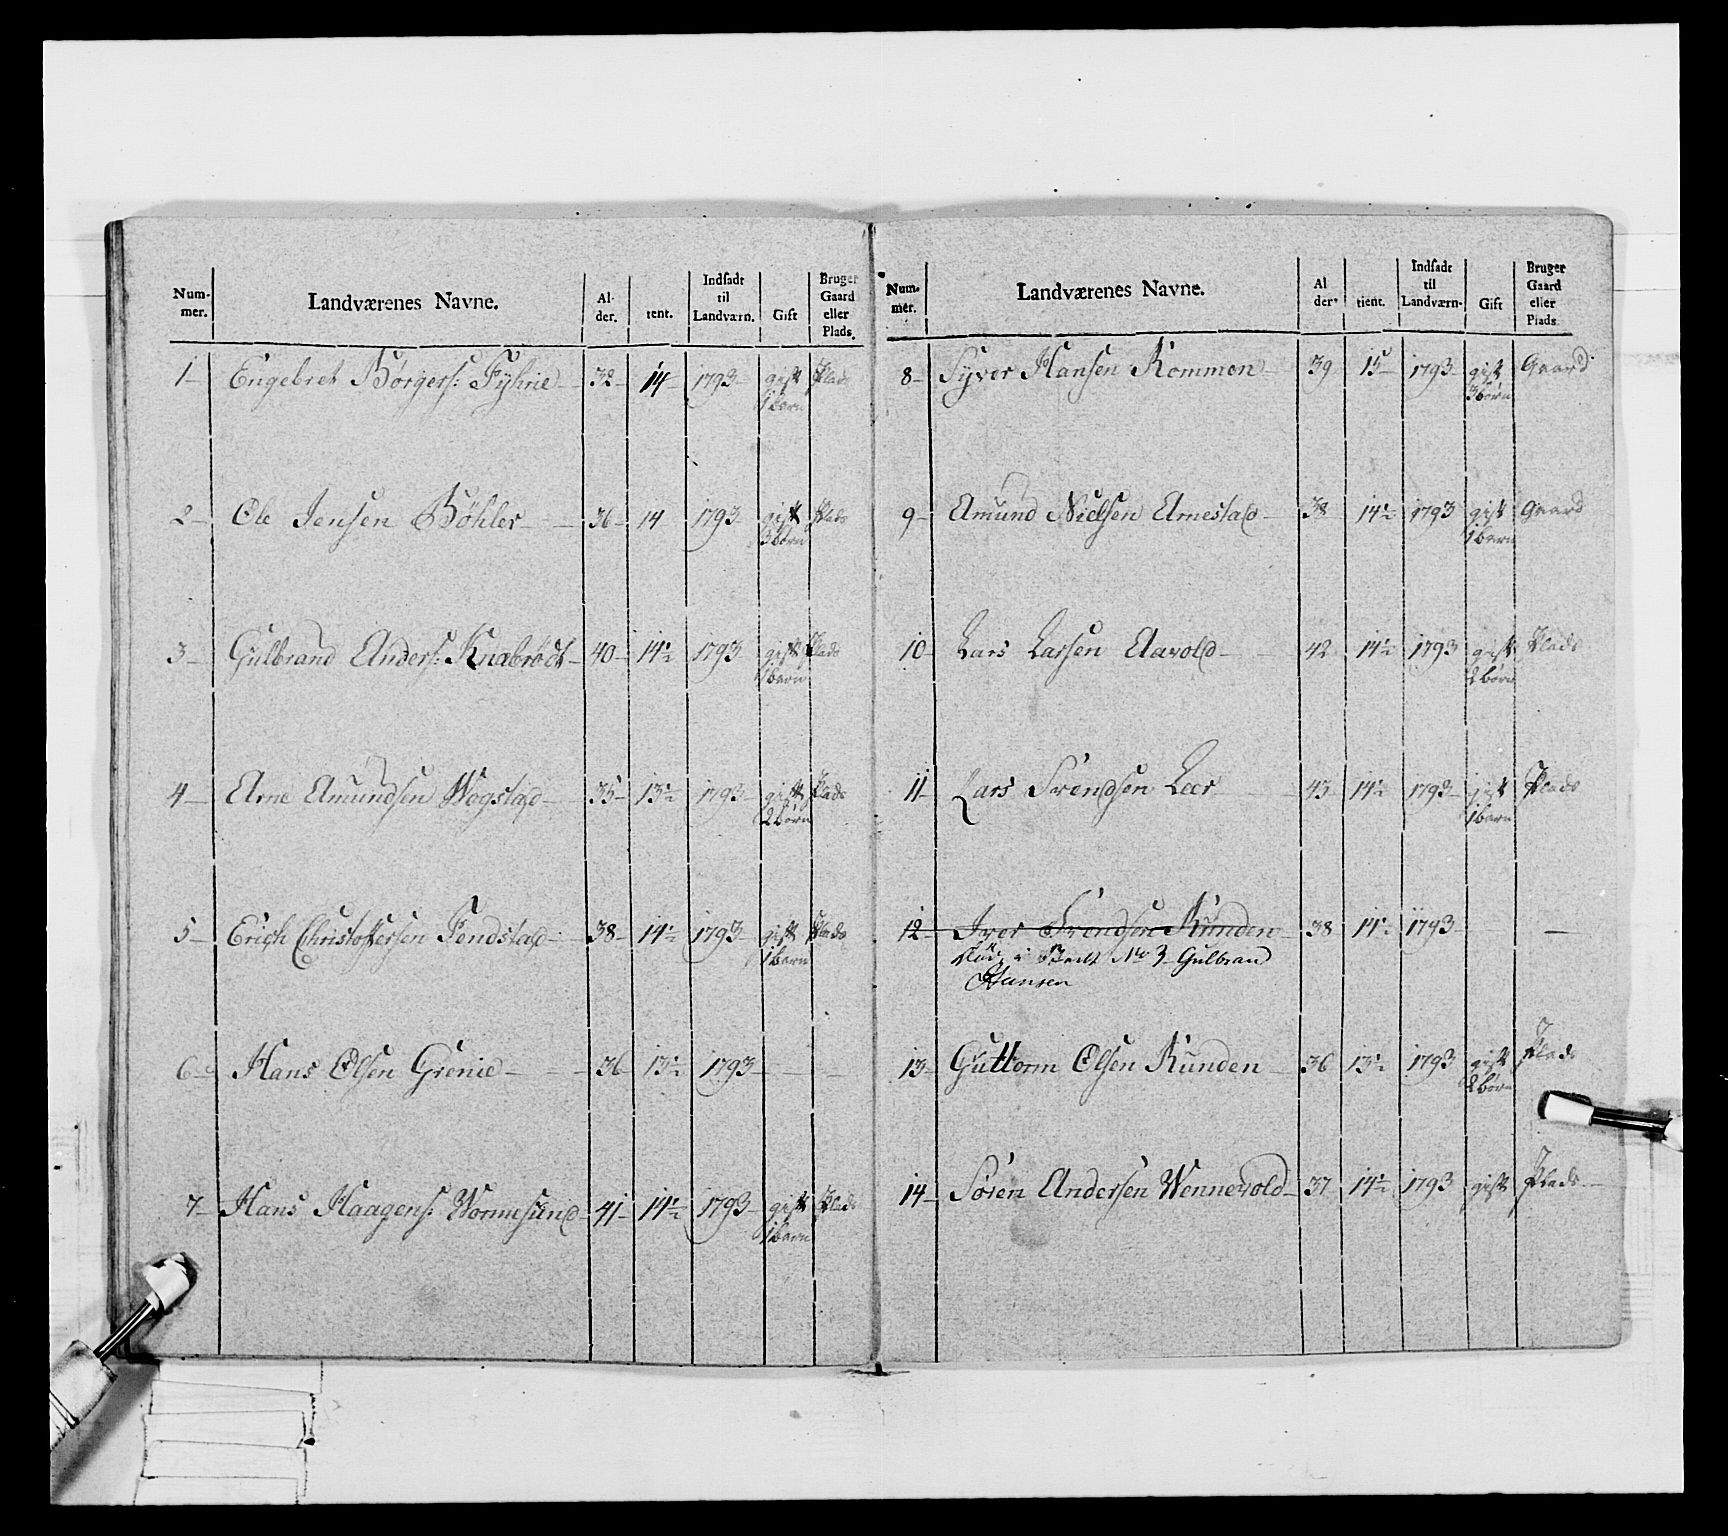 Num-
mer.
Landværenes Navne.
Al-
der.
tent.
Indsadt
til
Landværn.
Gift
Bruger
Gaard
eller
Plads.
1 Engebret Börgers: 32 14 1793 gift Plads
1 barn
2 Ole Jensen Böhler 36 14 1793 gift Plads
3 börn
3 Gulbrand Anders: Knæbrödt 40 14½ 1793 gift Plads
1 barn
4 Arne Amundsen Wogstad 35 13½ 1793 gift Plads
2 börn
5 Erich Christoffersen Fendstad 38 14½ 1793 gift Plads
1 barn
6 Hans Olsen Grenie 36 13½ 1793 — —
7 Hans Haagens: Wormsund 41 14½ 1793 gift Plads
1 barn
Num-
mer.
Landværenes Navne.
Al
der.
tient.
Indsadt
til
Landværn.
Gift
Bruger
Gaard
eller
Plads
8 Syver Hansen Rommen 39 15 1793 gift Gaard
3 börn
9 Amund Nielsen Arnestad 38 14½ 1793 gift Gaard
1 barn
10 Lars Larsen Aavold 42 14½ 1793 gift Plads
2 börn
11 Lars Svendsen Leer 43 14½ 1793 gift Plads
1 barn
12 Iver Svendsen Runden 38 14½ 1793 —
i No 3 Gulbrand
Hansen
13 Guttorm Olsen Runden 36 13½ 1793 gift Plads
2 börn
14 Sören Andersen Wennevold 37 14½ 1793 gift Plads